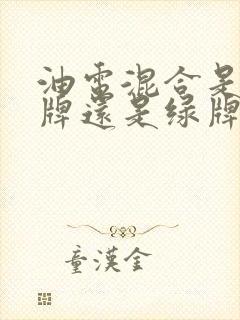 油電混合是
牌還是绿牌
童漢金